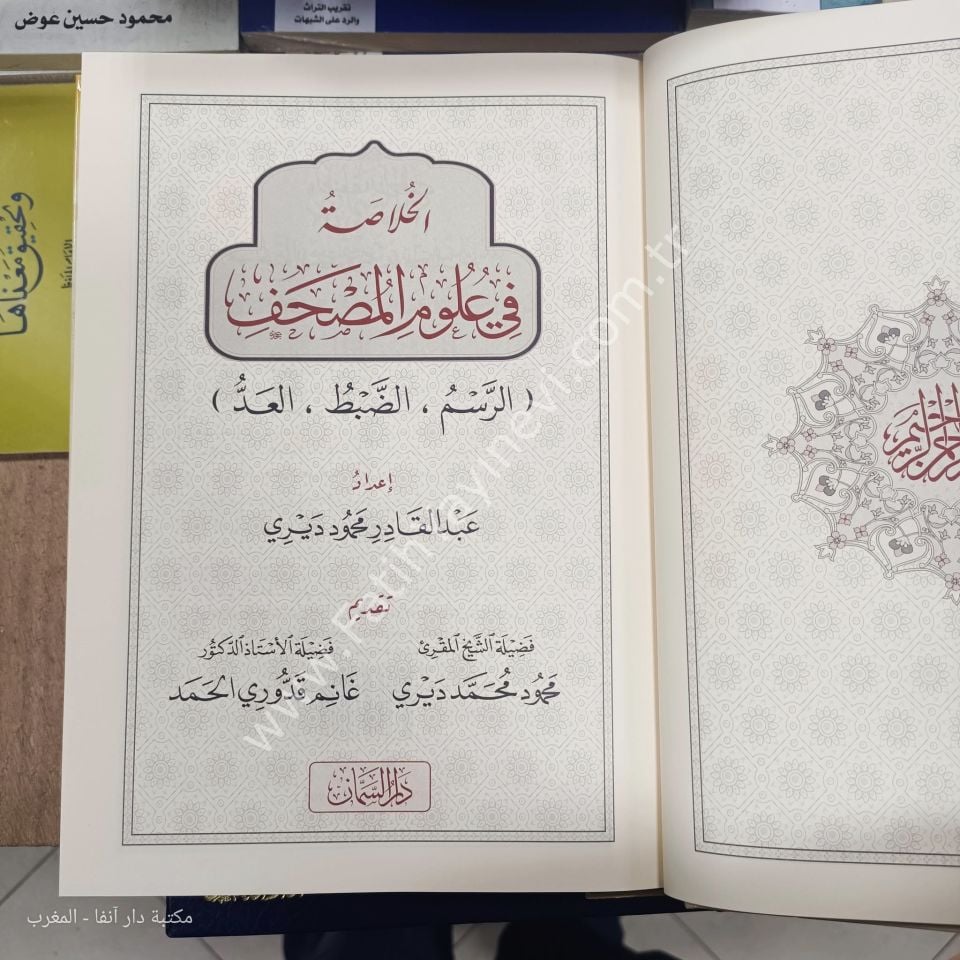 محمود حسين عوض
تقريب التراث
والرد على الشبهات
وتحقيق معناها
الخُلاصَةُ
فِي عُلُومِ المُصْحَفِ
( الرَّسْمُ ، الضَّبْطُ ، العَدُّ )
إعداد
عَبْدالقَادِر مَحمُود دَيْرِي
تقديم
فَضِيلَة الشَّيخ المُقرِئ
مَحمُود مُحَمَّد دَيْرِي
فَضِيلَة الأستَاذ الدَّكتُور
غَانِم قَدُّورِي الحَمَد
دَارُ السَّمَّان
www.Fatihyayinevi.com.tr
مكتبة دار آنفا - المغرب